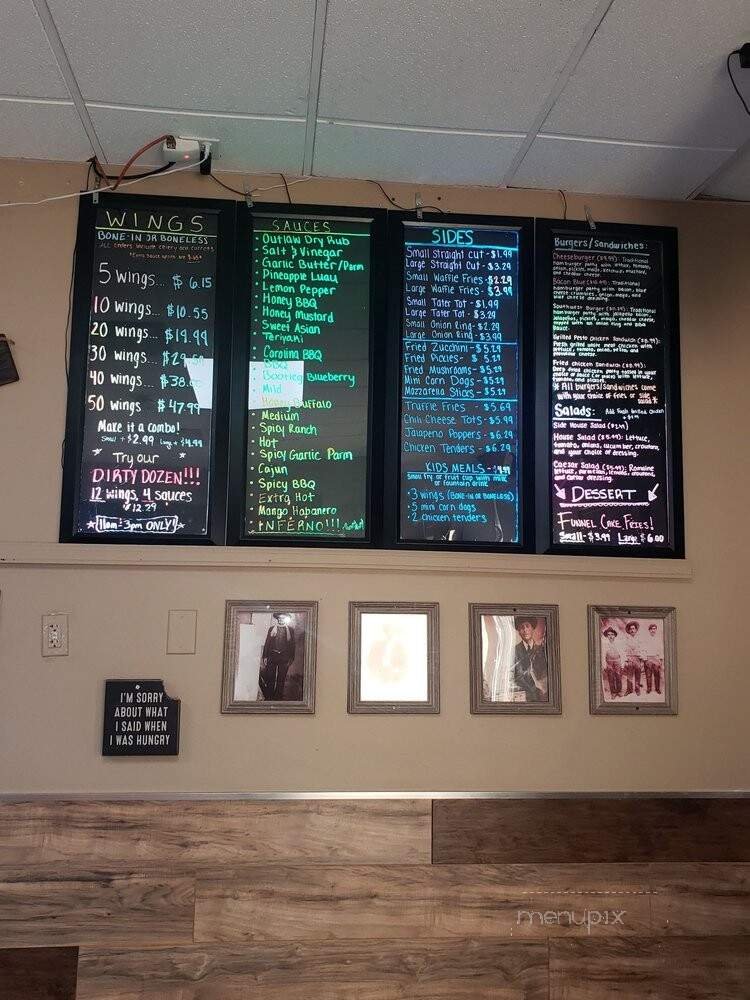 WINGS
BONE-IN OR BONELESS
ALL orders include celery and carrots
5 wings... $6.15
10 wings... $10.55
20 wings... $19.99
30 wings...
40 wings
50 wings $47.99
Make it a combo!
Small + $2.99 Large + $4.99
Try our
DIRTY DOZEN!!!
12 wings, 4 sauces
$12.29
11am-3pm ONLY!
SAUCES
Outlaw Dry Rub
Salt & Vinegar
Garlic Butter/Parm
Pineapple Luau
Lemon Pepper
Honey BBQ
Honey Mustard
Sweet Asian
Teriyaki
Carolina BBQ
BBQ
Bootleg Blueberry
Mild
Honey Buffalo
Medium
Spicy Ranch
Hot
Spicy Garlic Parm
Cajun
Spicy BBQ
Extra Hot
Mango Habanero
INFERNO!!!
SIDES
Small Straight Cut - $1.99
Large Straight Cut - $3.29
Small Waffle Fries - $2.29
Large Waffle Fries - $3.99
Small Tater Tot - $1.99
Large Tater Tot - $3.99
Small Onion Ring - $2.29
Large Onion Ring - $3.99
Fried Zucchini - $5.29
Fried Pickles - $5.29
Fried Mushrooms - $5.29
Mini Corn Dogs - $5.29
Mozzarella Sticks - $5.29
Truffle Fries - $5.69
Chili Cheese Tots - $5.99
Jalapeno Poppers - $6.29
Chicken Tenders - $6.29
KIDS MEALS - $4.99
Small fry or fruit cup with milk
or fountain drink
3 wings (BONE-IN OR BONELESS)
5 mini corn dogs
2 chicken tenders
Burgers/Sandwiches:
Cheeseburger Traditional
hamburger patty with lettuce, tomato,
onion, pickles, mayo, ketchup, mustard,
and cheddar cheese.
Traditional
hamburger patty with bacon, blue
cheese crumbles, onion, mayo, and
blue cheese dressing.
Traditional
hamburger patty with jalapeno bacon,
jalapenos, pickles, mayo, cheddar cheese,
topped with an onion ring and BBQ
Sauce.
Grilled Pesto Chicken Sandwich
Fresh grilled white meat chicken with
lettuce, tomato, onion, and
provolone cheese.
Fried Chicken Sandwich
Deep fried chicken patty tossed in your
choice of sauce with lettuce,
tomato, and pickles.
* All burgers/sandwiches come
with your choice of fries or side
salad *
Salads: Add fresh grilled chicken
Side House Salad
House Salad Lettuce,
tomato, onions, cucumber, croutons,
and your choice of dressing.
Caesar Salad Romaine
lettuce, parmesan, croutons,
and Caesar dressing.
DESSERT
FUNNEL CAKE FRIES!
Small - $3.99 Large $6.00
I'M SORRY
ABOUT WHAT
I SAID WHEN
I WAS HUNGRY
menupix